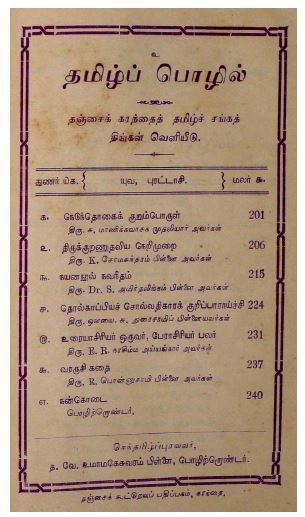 உ
தமிழ்ப் பொழில்
தஞ்சைக் கரந்தைத் தமிழ்ச் சங்கத்
திங்கள் வெளியீடு.
துணர் யக. யுவ, புரட்டாசி. மலர் சு.
க. நெடுந்தொகைக் குறும்பொருள் 201
திரு. சு. மாணிக்கவாசக முதலியார் அவர்கள்
உ. திருக்குறணுதலிய நெறிமுறை 206
திரு. K. சோமசுந்தரம் பிள்ளை அவர்கள்
ங. பயனணூல் நவநீதம் 215
திரு. Dr. S. பிள்ளை அவர்கள்
ச. தொல்காப்பியச் சொல்லதிகாரக் குறிப்பாராய்ச்சி 224
திரு. ஔவை. சு. துரைசாமிப் பிள்ளையவர்கள்
ரு. உரையாசிரியர் ஒருவர், பேராசிரியர் பலர் 231
திரு. E. R. நரசிம்ம அய்யங்கார் அவர்கள்
சு. வரருசி கதை 237
திரு. R. பொன்னுசாமி பிள்ளை அவர்கள்
எ. நன்கொடை 240
பொழிற்றொண்டர்.
செந்தமிழ்ப்புரவலர்,
த. வே. உமாமகேசுவரம் பிள்ளை, பொழிற்றொண்டர்.
தஞ்சைக் கூட்டுறவுப் பதிப்பகம், கரந்தை.